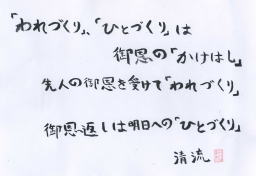 「われづくり」、「ひとづくり」は
御恩の「かけはし」
先人の御恩を受けて「われづくり」
御恩返しは明日への「ひとづくり」
清流